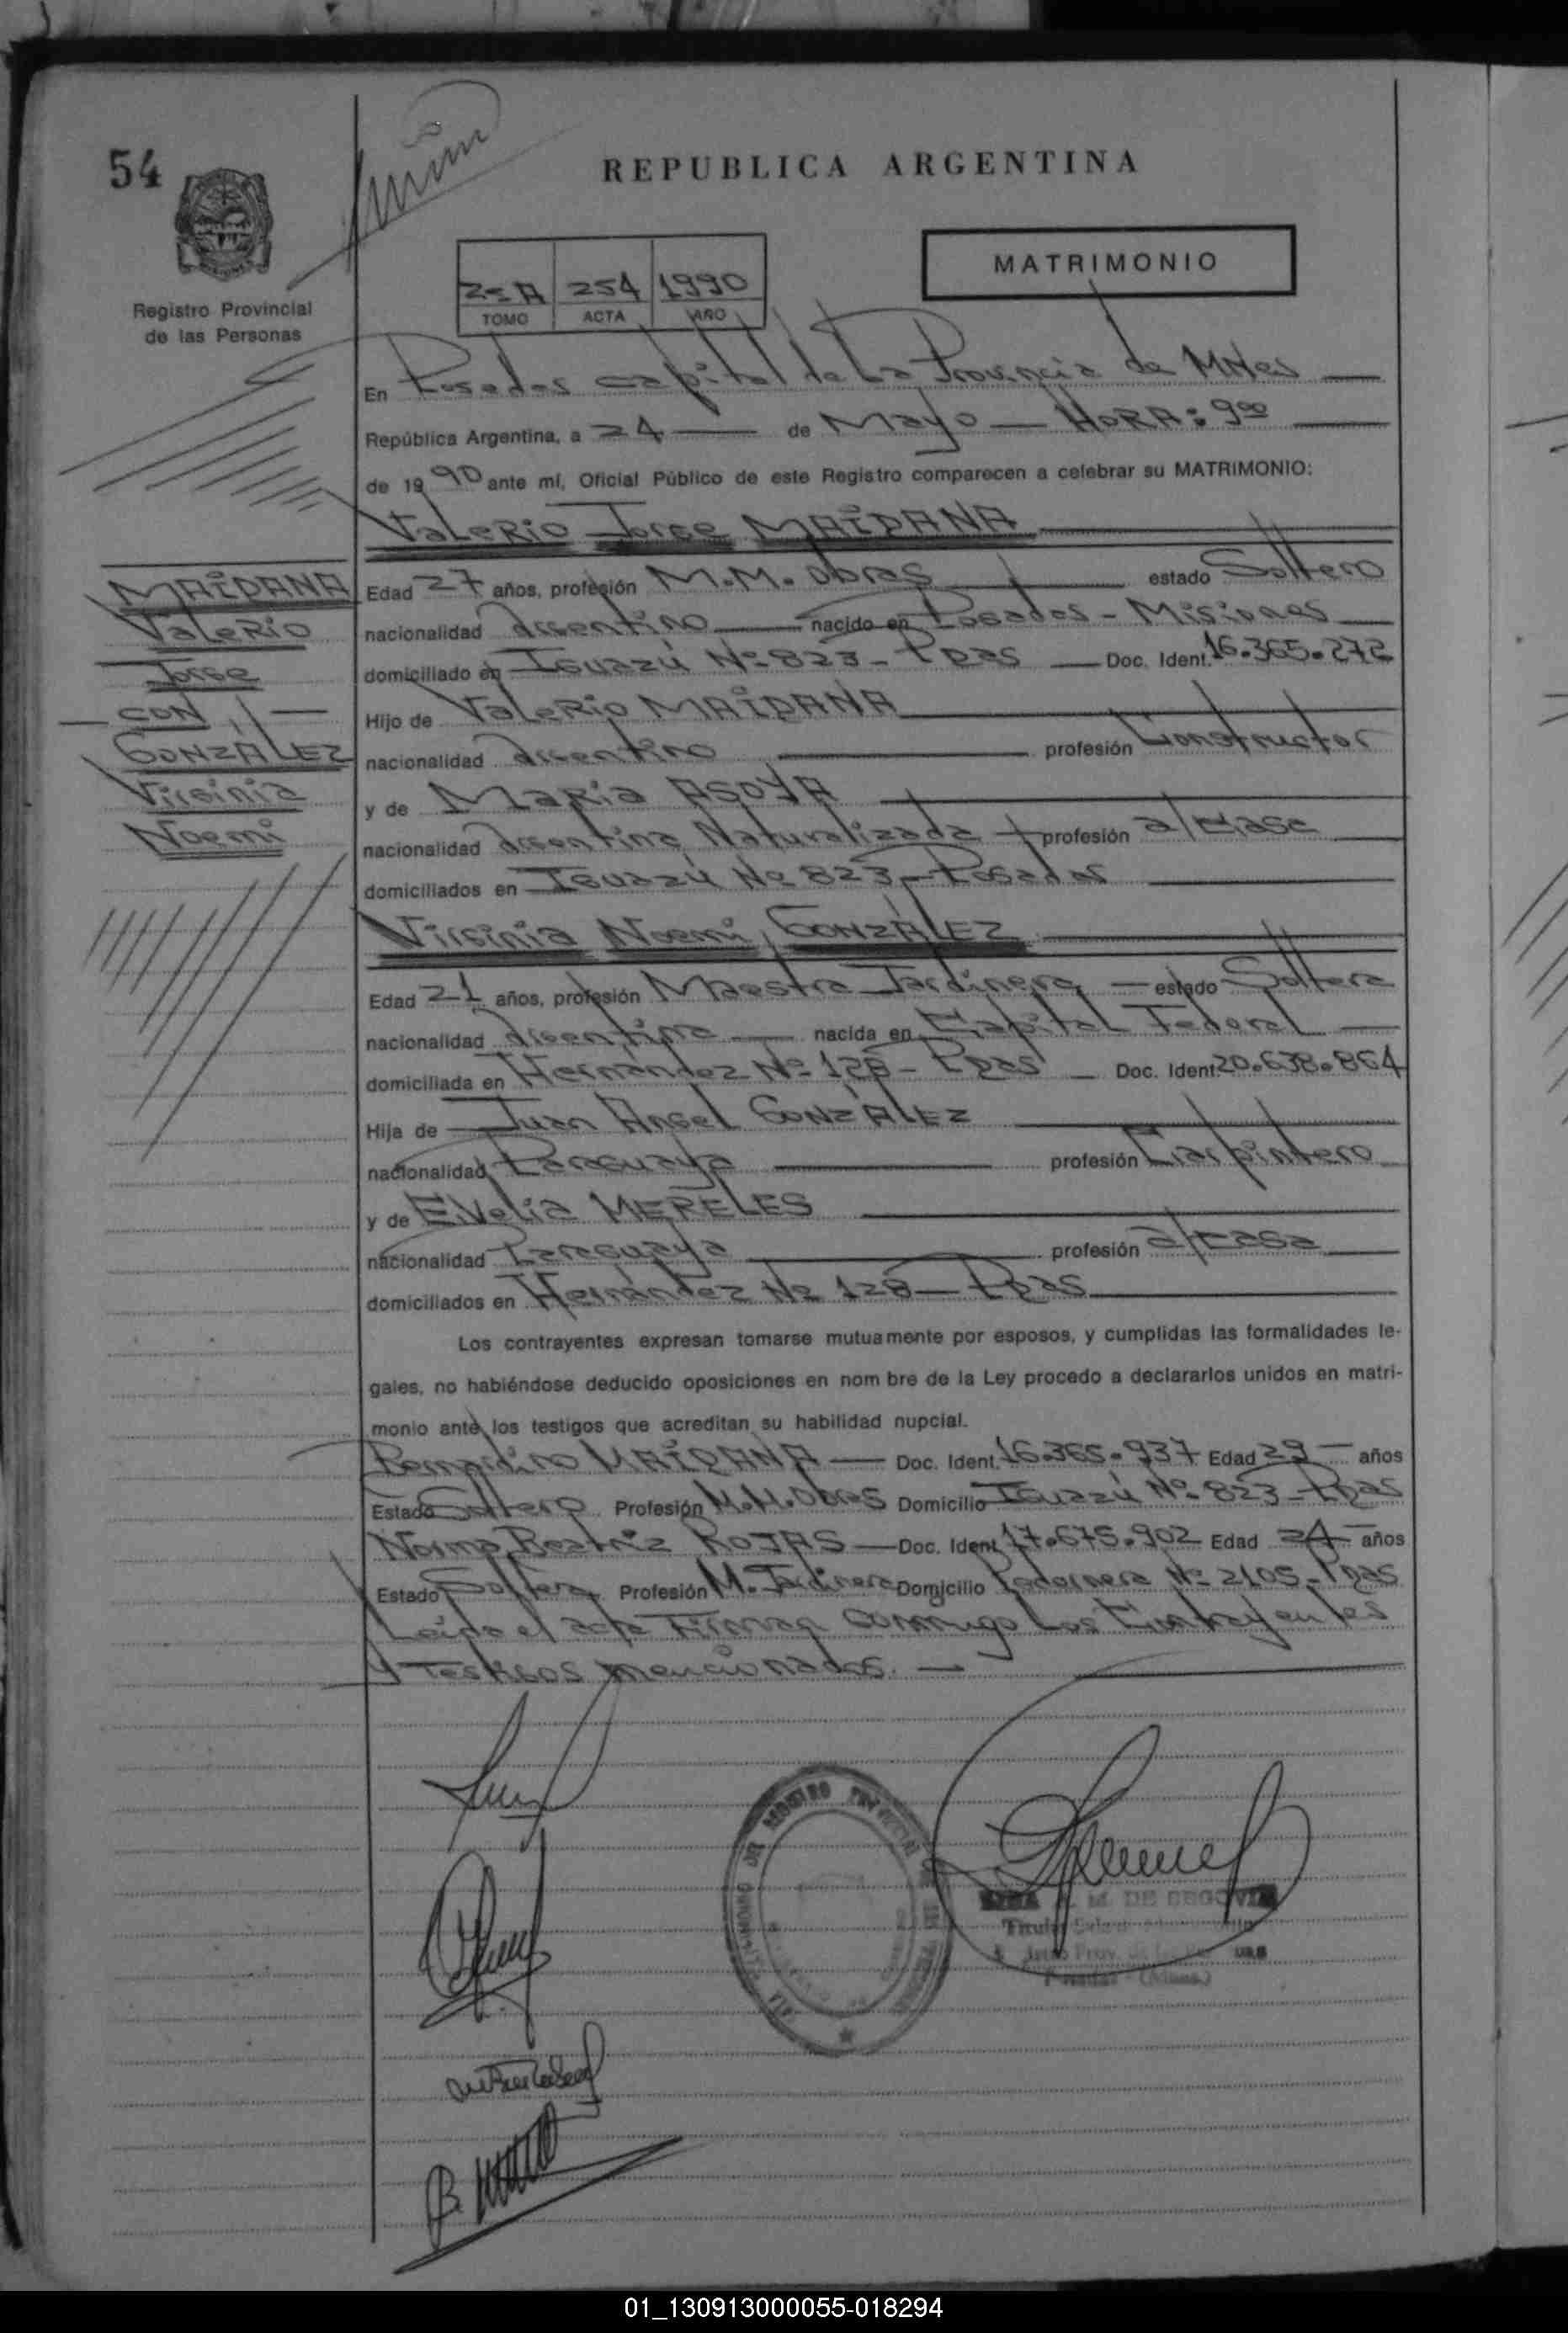 54
REPUBLICA ARGENTINA
MATRIMONIO
Registro Provincial
de las Personas
254 1990
TOMO ACTA AÑO
En Posadas capital de La Provincia de MNes
República Argentina, a 24 de Mayo HORA: 9⁰⁰
de 1990 ante mí, Oficial Público de este Registro comparecen a celebrar su MATRIMONIO:
Valerio Jorge MAIDANA
MAIDANA
Valerio
Jorge
CON
GONZÁLEZ
Virginia
Noemi
Edad 27 años, profesión M.M. obras estado Soltero
nacionalidad Argentino nacido en Posadas - Misiones
domiciliado en Iguazú Nº 823 - Pdas Doc. Ident. 16.365.272
Hijo de Valerio MAIDANA
nacionalidad Argentino profesión Constructor
y de Maria AGOYA
nacionalidad Argentina Naturalizada profesión a/casa
domiciliados en Iguazú Nº 823 - Posadas
Virginia Noemi GONZÁLEZ
Edad 21 años, profesión Maestra Jardinera estado Soltera
nacionalidad Argentina nacida en Capital Federal
domiciliada en Hernández Nº 128 - Pdas Doc. Ident 20.638.864
Hija de Juan Angel GONZÁLEZ
nacionalidad Paraguaya profesión Carpintero
y de Evelia MERELES
nacionalidad Paraguaya profesión a/casa
domiciliados en Hernández Nº 128 - Pdas
Los contrayentes expresan tomarse mutuamente por esposos, y cumplidas las formalidades le-
gales, no habiéndose deducido oposiciones en nom bre de la Ley procedo a declararlos unidos en matri-
monio ante los testigos que acreditan su habilidad nupcial.
Bernardino MAIDANA Doc. Ident. 16.365.937 Edad 29 años
Estado Soltero Profesión M.M. Obras Domicilio Iguazú Nº 823 - Pdas
Norma Beatriz ROJAS Doc. Ident. 17.675.902 Edad 24 años
Estado Soltera Profesión M. Jardinera Domicilio Padernera Nº 2105 - Pdas
Leida el acta Firman conmigo Los Contrayentes
y Testigos mencionados.
M. DE SEGOVIA
Titular
Posadas - (Mnes.)
01_130913000055-018294